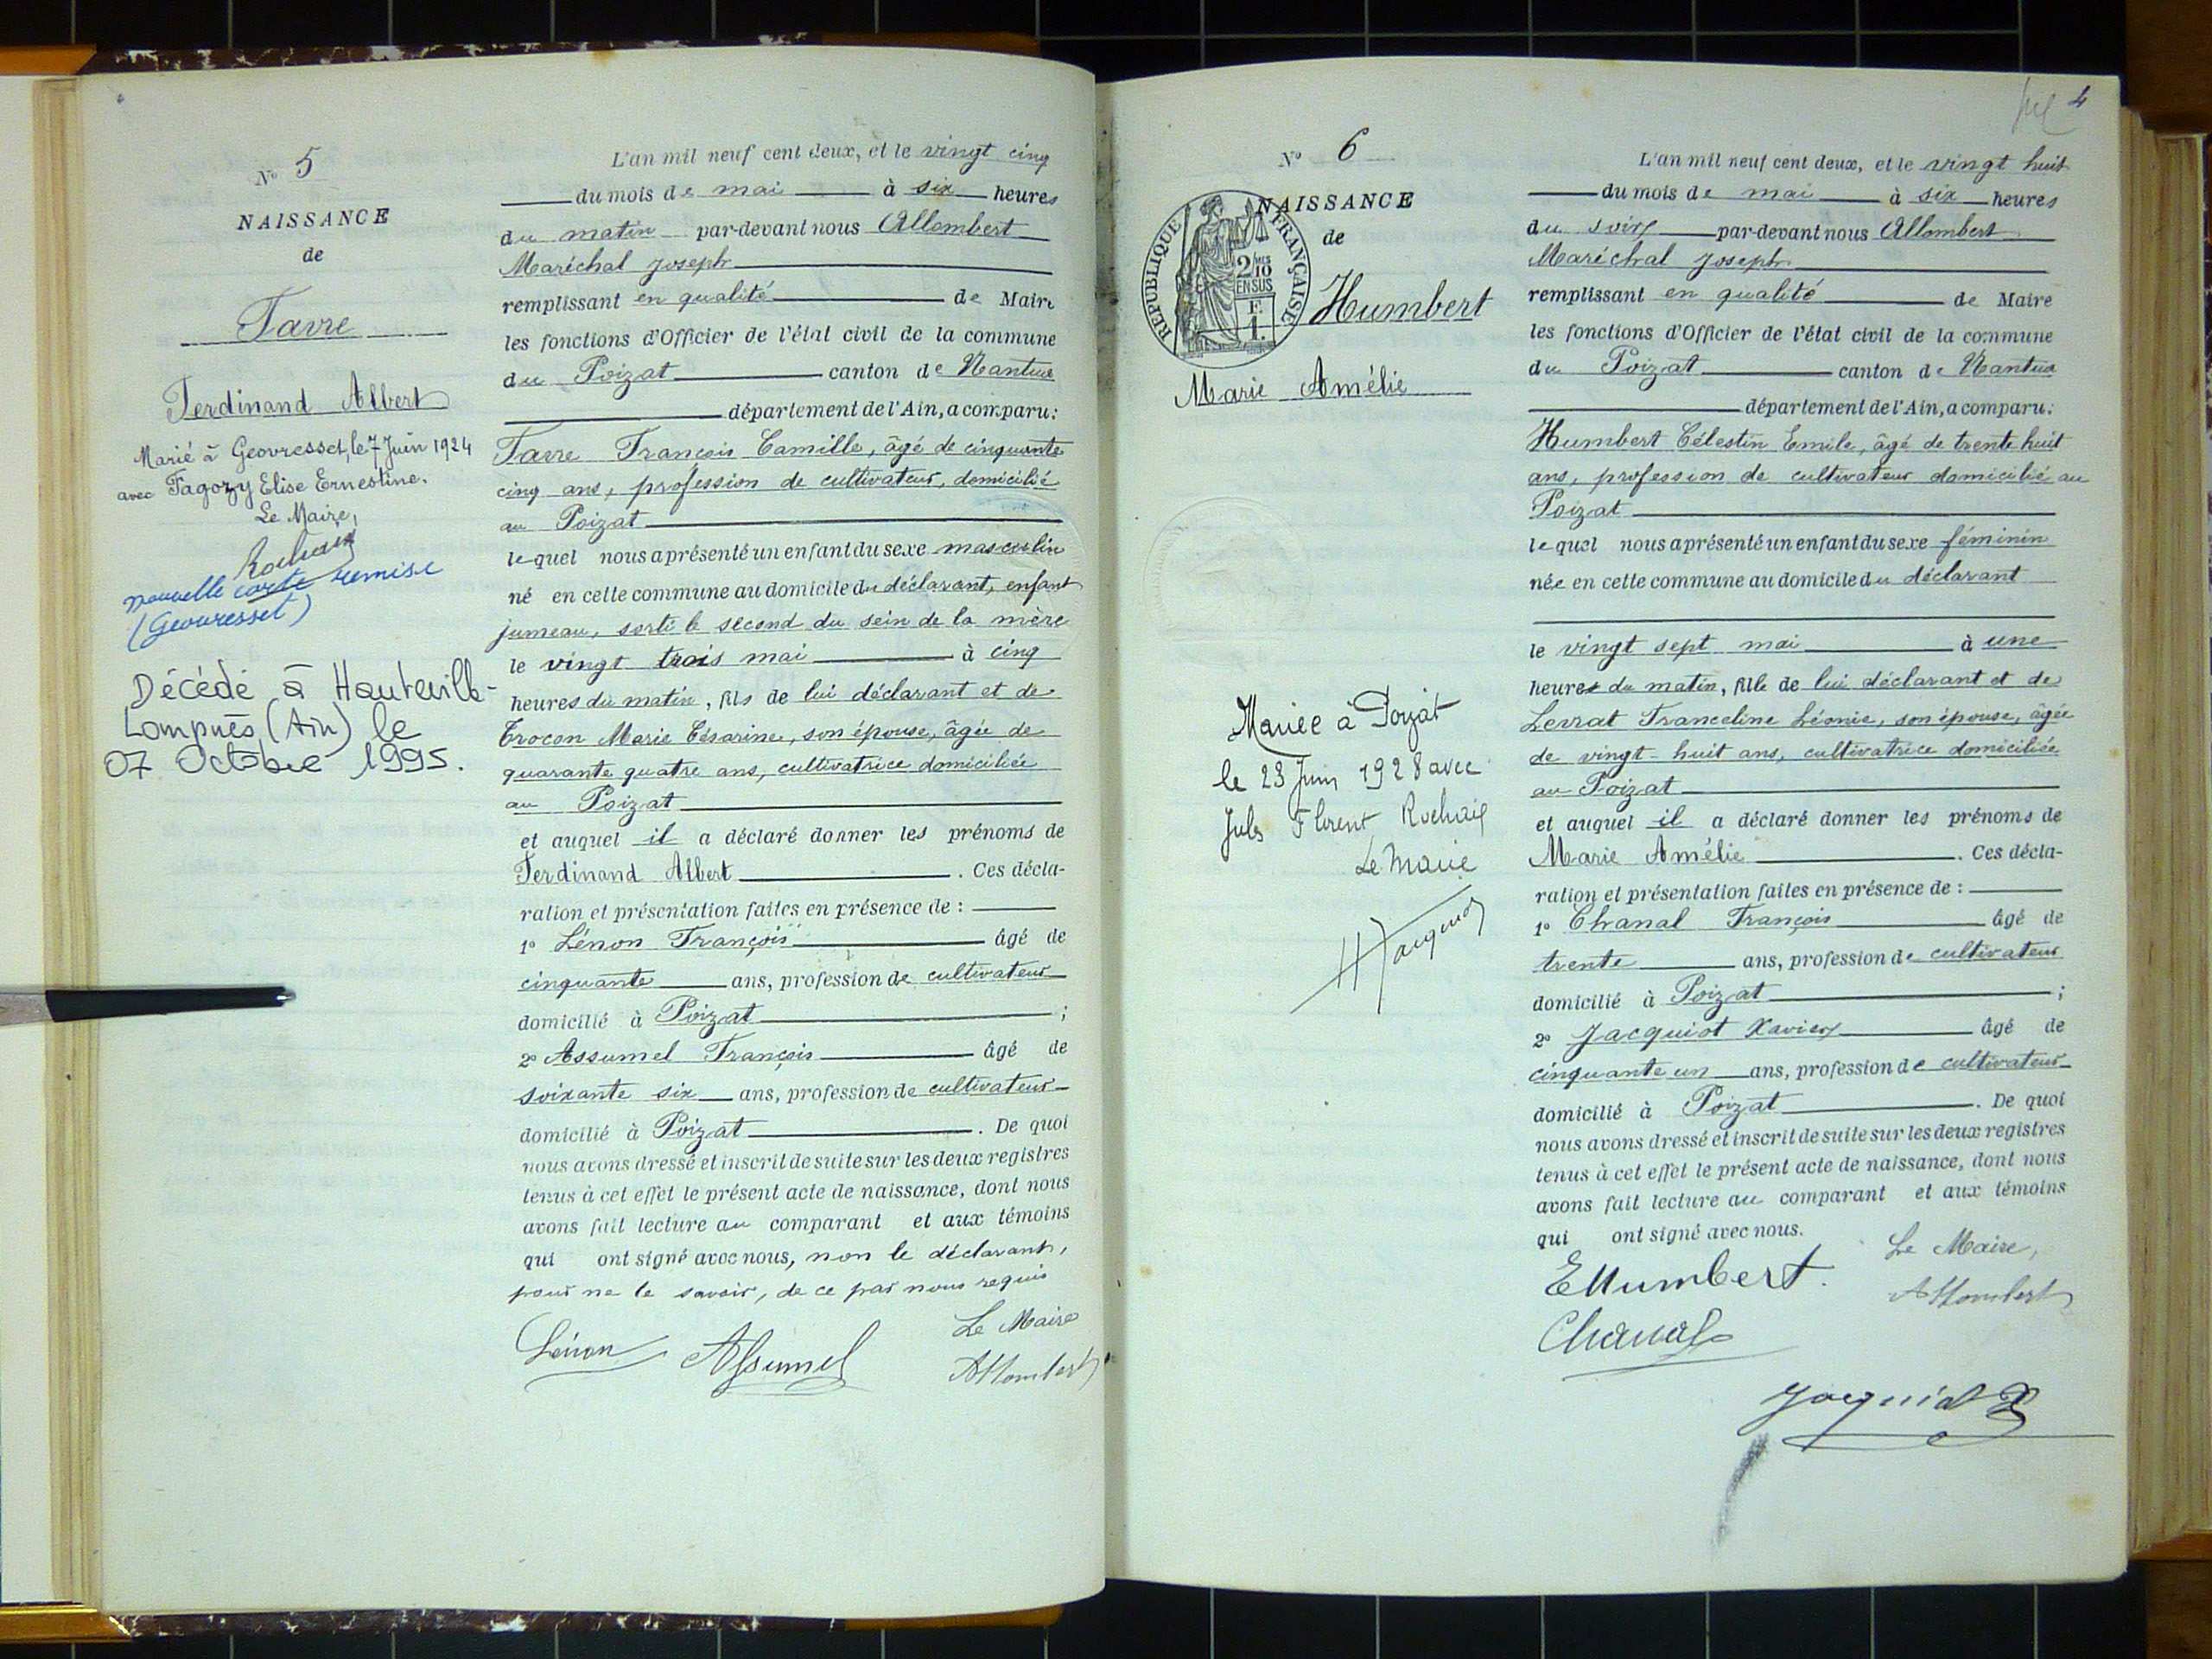 Nº 5
NAISSANCE
de
Favre
Ferdinand Albert
Marié à Geovresset, le 7 Juin 1924
avec Fagozy Elise Ernestine.
Le Maire,
nouvelle carte remise
(Geovresset)
Décédé à Hauteville-
Lompnès (Ain) le
07 Octobre 1995.
L'an mil neuf cent deux, et le vingt cinq
du mois de mai à six heures
du matin par-devant nous Allombert
Maréchal Joseph
remplissant en qualité de Maire
les fonctions d'Officier de l'état civil de la commune
du Poizat canton de Nantua
département de l'Ain, a comparu:
Favre François Camille, âgé de cinquante
cinq ans, profession de cultivateur, domicilié
au Poizat
lequel nous a présenté un enfant du sexe masculin
né en cette commune au domicile du déclarant, enfant
jumeau, sorti le second du sein de la mère
le vingt trois mai à cinq
heures du matin, fils de lui déclarant et de
Crocon Marie Césarine, son épouse, âgée de
quarante quatre ans, cultivatrice domiciliée
au Poizat
et auquel il a déclaré donner les prénoms de
Ferdinand Albert. Ces décla-
ration et présentation faites en présence de :
1º Lénon François âgé de
cinquante ans, profession de cultivateur
domicilié à Poizat ;
2º Assumel François âgé de
soixante six ans, profession de cultivateur
domicilié à Poizat. De quoi
nous avons dressé et inscrit de suite sur les deux registres
tenus à cet effet le présent acte de naissance, dont nous
avons fait lecture au comparant et aux témoins
qui ont signé avec nous, non le déclarant,
pour ne le savoir, de ce par nous requis
Le Maire
Lénon Assumel Allombert
4
Nº 6
NAISSANCE
de
REPUBLIQUE FRANÇAISE
2/10
EN SUS
F.
1.
Humbert
Marie Amélie
Mariée à Poizat
le 23 Juin 1928 avec
Jules Florent Rochaix
Le Maire
H Jacquiot
L'an mil neuf cent deux, et le vingt huit
du mois de mai à six heures
du soir par-devant nous Allombert
Maréchal Joseph
remplissant en qualité de Maire
les fonctions d'Officier de l'état civil de la commune
du Poizat canton de Nantua
département de l'Ain, a comparu:
Humbert Célestin Emile, âgé de trente huit
ans, profession de cultivateur domicilié au
Poizat
lequel nous a présenté un enfant du sexe féminin
née en cette commune au domicile du déclarant
le vingt sept mai à une
heure du matin, fille de lui déclarant et de
Levrat Franceline Léonie, son épouse, âgée
de vingt-huit ans, cultivatrice domiciliée
au Poizat
et auquel il a déclaré donner les prénoms de
Marie Amélie. Ces décla-
ration et présentation faites en présence de :
1º Chanal François âgé de
trente ans, profession de cultivateur
domicilié à Poizat ;
2º Jacquiot Xavier âgé de
cinquante un ans, profession de cultivateur
domicilié à Poizat. De quoi
nous avons dressé et inscrit de suite sur les deux registres
tenus à cet effet le présent acte de naissance, dont nous
avons fait lecture au comparant et aux témoins
qui ont signé avec nous.
Le Maire,
E Humbert. Allombert
Chanal
Jacquiot X